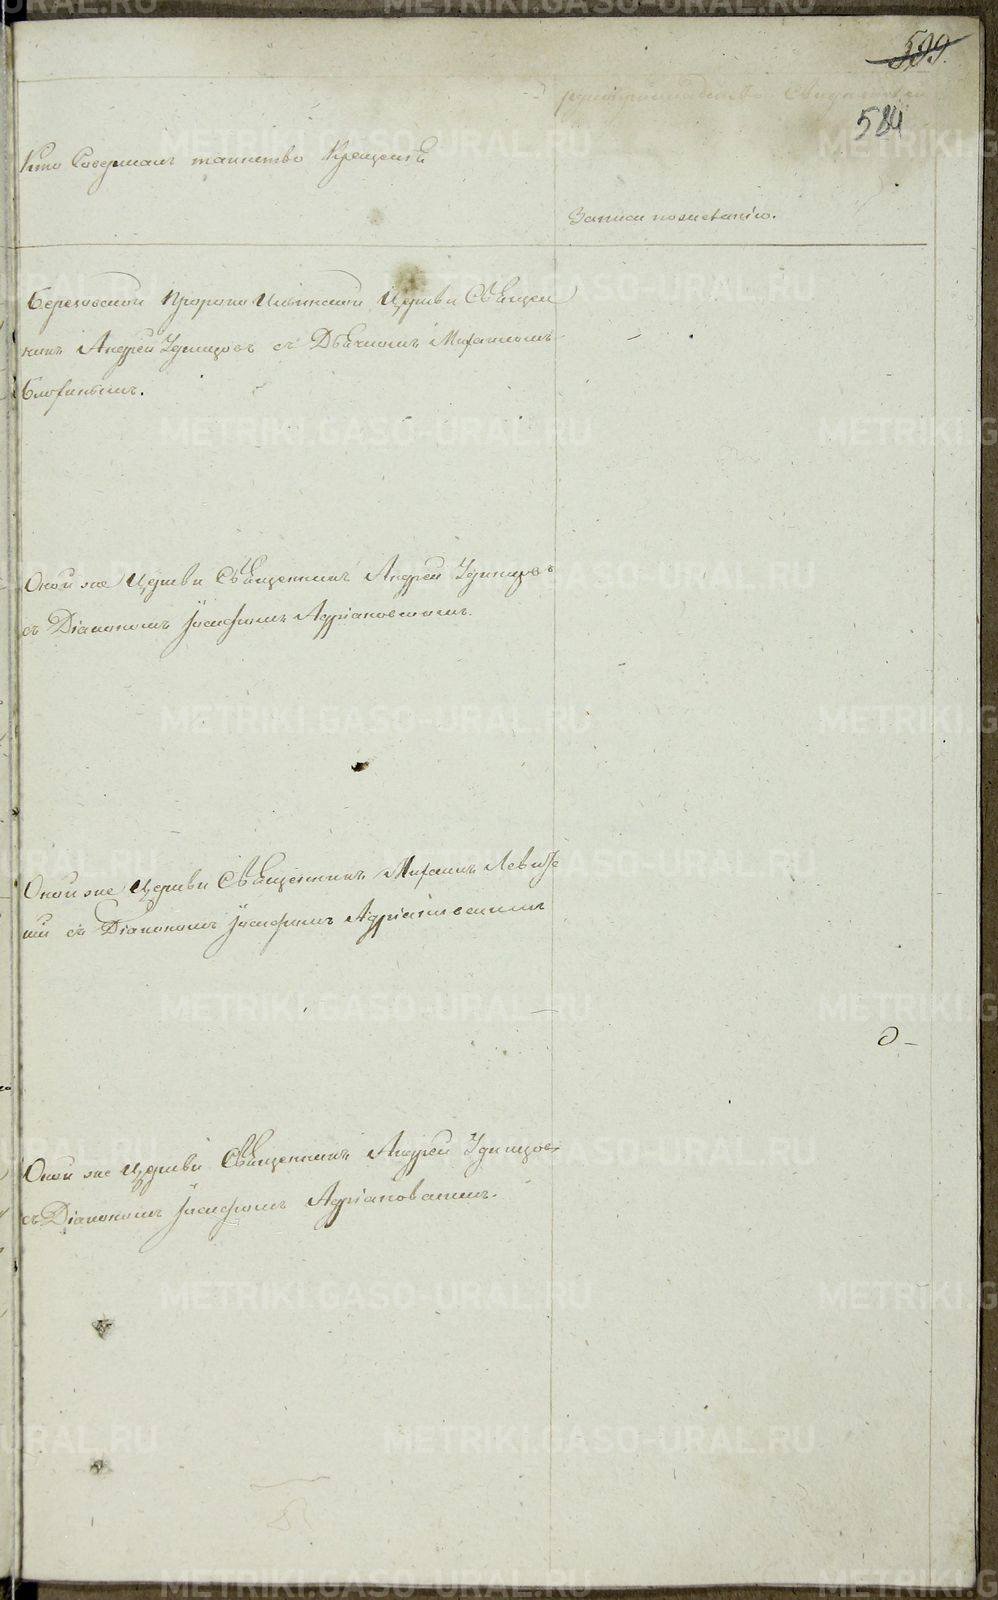 599.
584
рукоприкладство свидетелей
Кто совершалъ таинство крещенія
записи по желанію.
Березовской Пророко Ильинской Церкви Священ
никъ Андрей Удинцовъ съ Дьячкомъ Михаиломъ
Оной же Церкви Священникъ Андрей Удинцовъ
съ Діакономъ Іосифомъ Адріановскимъ.
Оной же Церкви Священникъ Михаилъ Левитс
кій съ Діакономъ Іосифомъ Адріановскимъ
Оной же Церкви Священникъ Андрей Удинцов
съ Діакономъ Іосифомъ Адріановскимъ.
METRIKI.GASO-URAL.RU